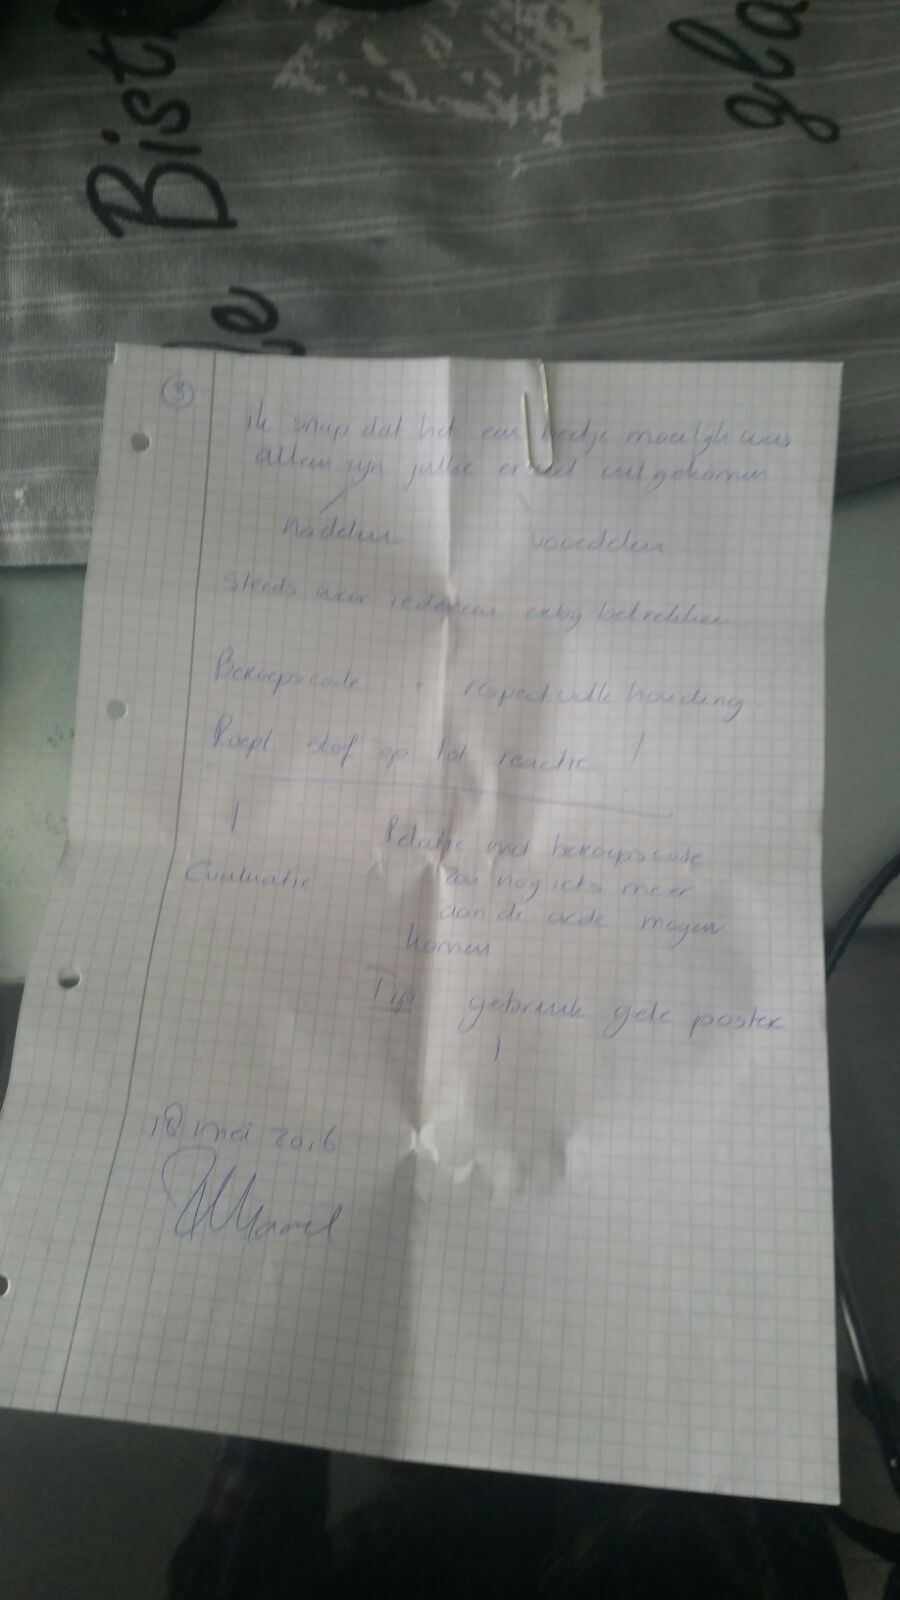 Bist
gla
le
3
ik snap dat het een beetje moeilijk was
alleen zijn jullie er wel uitgekomen
nadelen voordelen
steeds weer iedereen erbij betrekken
Beroepscode • respectvolle houding
Roept stof op tot reactie !
Relatie met beroepscode
Evaluatie zou nog iets meer
aan de orde mogen
komen
Tip: gebruik gele poster
!
18 mei 2016